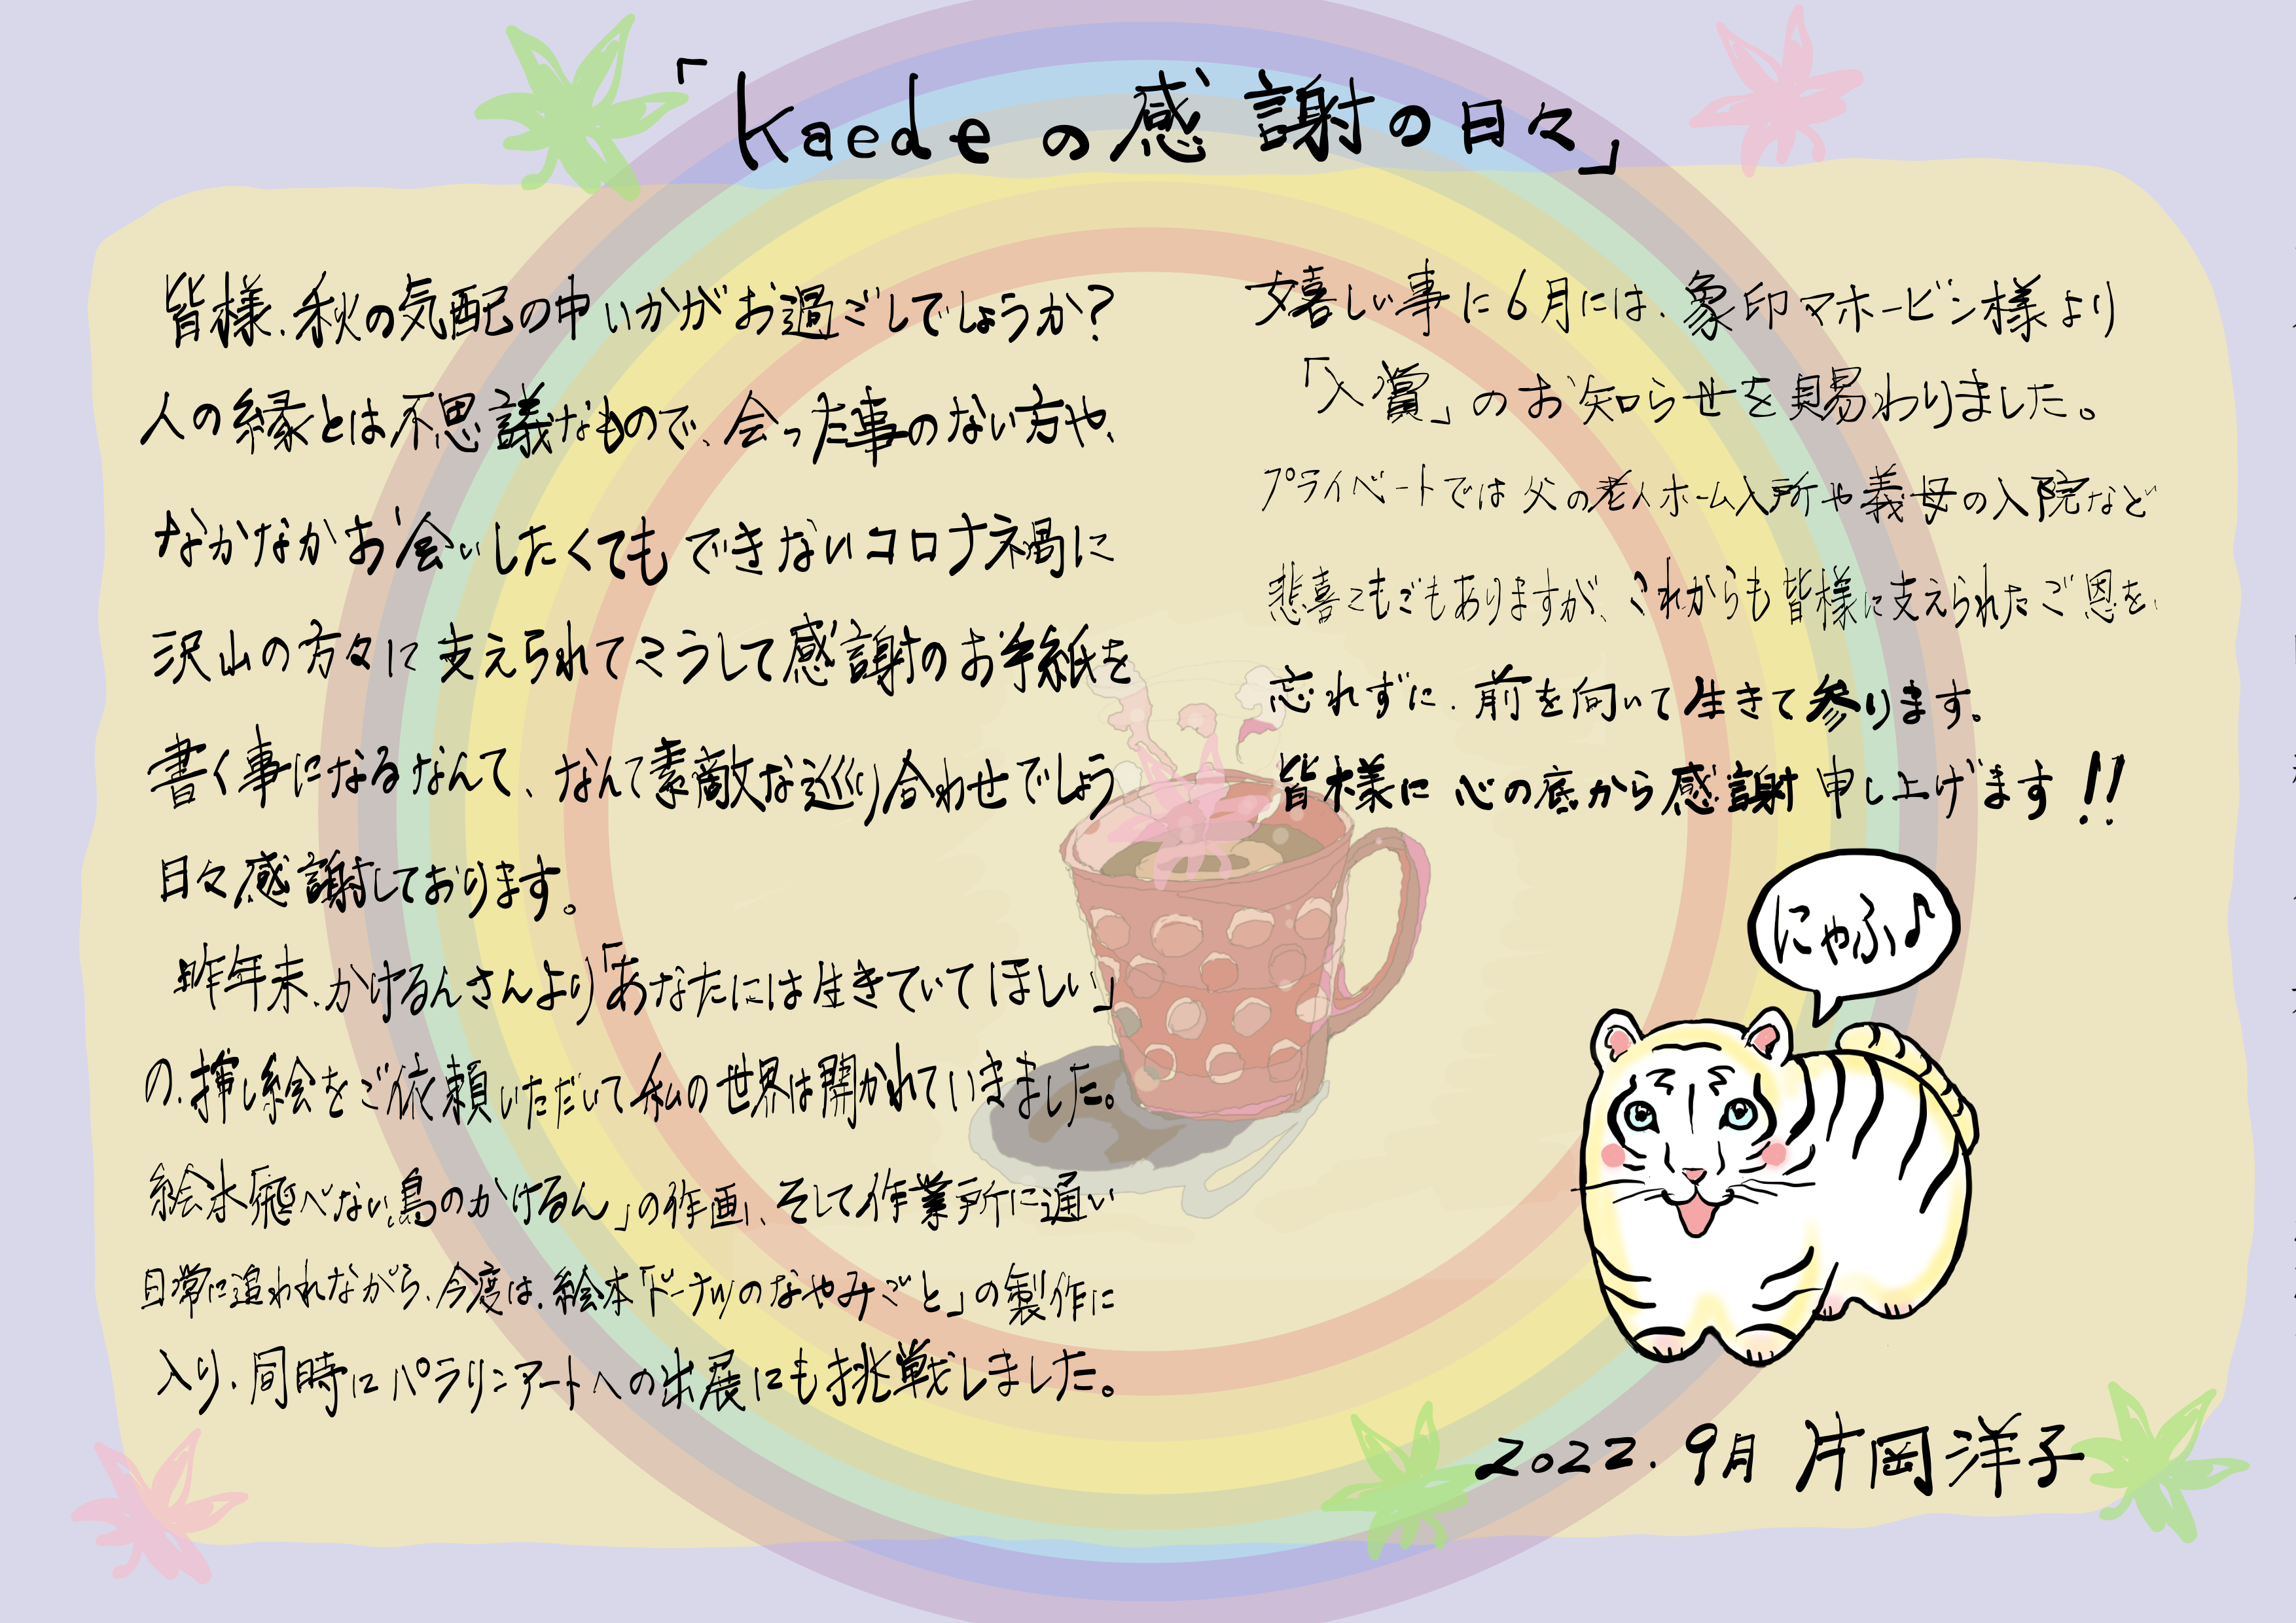 「kaedeの感謝の日々」
皆様、秋の気配の中いかがお過ごしでしょうか?
人の縁とは不思議なもので、会った事のない方や、
なかなかお会いしたくてもできないコロナ禍に
沢山の方々に支えられてこうして感謝のお手紙を
書く事になるなんて、なんて素敵な巡り合わせでしょう
日々感謝しております。
昨年末、かけるんさんより「あなたには生きていてほしい」
の、挿し絵をご依頼いただいて私の世界は開かれていきました。
絵本「飛べない鳥のかけるん」の作画、そして作業所に通い
日常に追われながら、今度は、絵本「ドーナツのなやみごと」の製作に
入り、同時にパラリンアートへの出展にも挑戦しました。
嬉しい事に6月には、象印マホービン様より
「入賞」のお知らせを賜わりました。
プライベートでは父の老人ホーム入所や義母の入院など
悲喜こもごもありますが、これからも皆様に支えられたご恩を、
忘れずに、前を向いて生きて参ります。
皆様に心の底から感謝申し上げます!!
にゃふ♪
2022.9月 片岡洋子